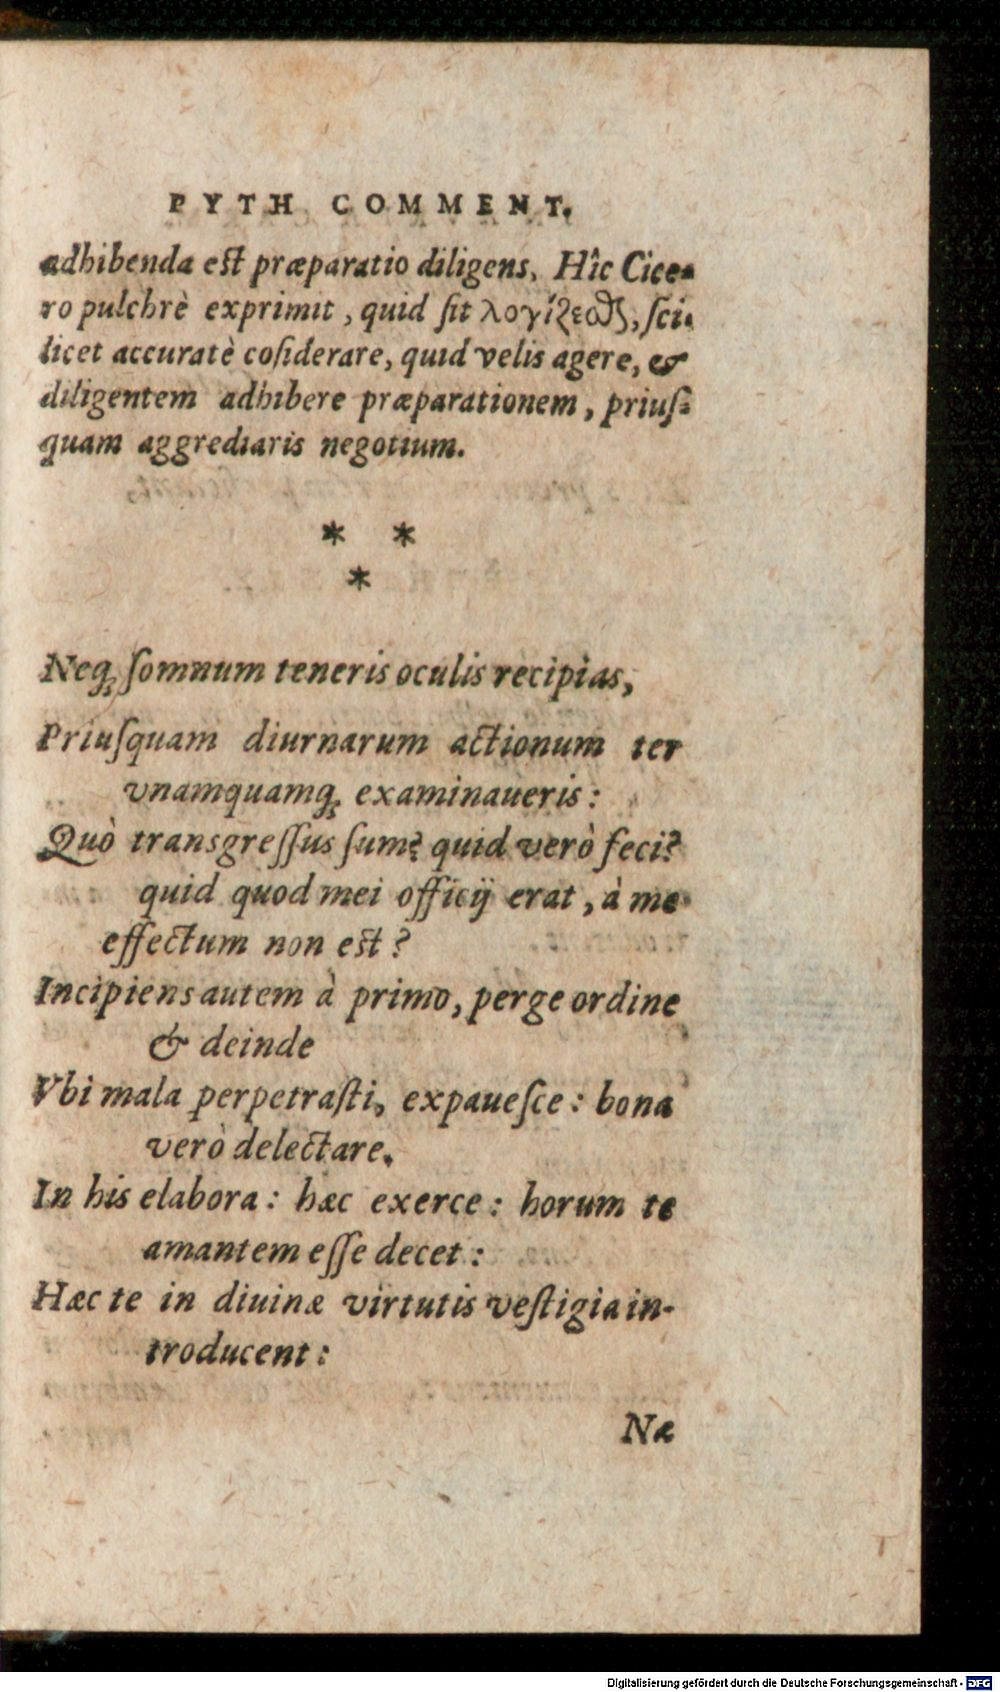 PYTH COMMENT.
adhibenda est præparatio diligens. Hîc Cice-
ro pulchrè exprimit, quid ſit λογίζεσθαι, ſci-
licet accuratè cõſiderare, quid velis agere, &
diligentem adhibere præparationem, priuſ-
quam aggrediaris negotium.
* *
*
Neq; ſomnum teneris oculis recipias,
Priuſquam diurnarum actionum ter
vnamquamq; examinaueris:
Quò transgreſſus ſum? quid verò feci?
quid quod mei officij erat, à me
effectum non est?
Incipiens autem à primo, perge ordine
& deinde
Vbi mala perpetraſti, expaueſce: bona
verò delectare.
In his elabora: hæc exerce: horum te
amantem eſſe decet:
Hæc te in diuinæ virtutis veſtigia in-
troducent:
Næ
Digitalisierung gefördert durch die Deutsche Forschungsgemeinschaft - DFG